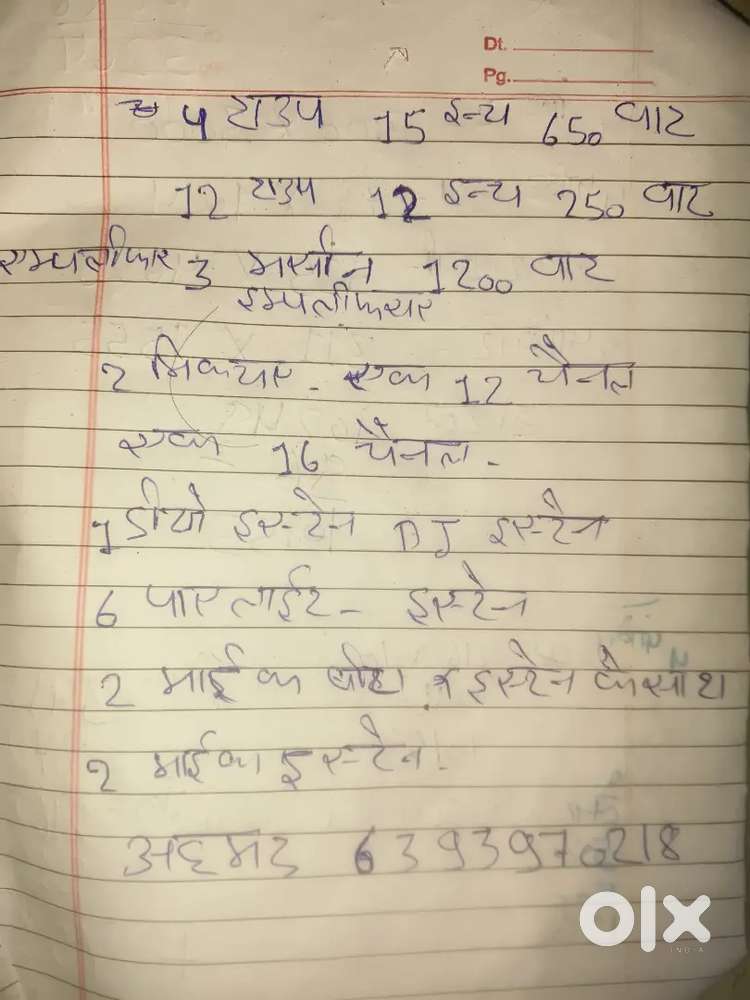 Dt.
Pg.
4 टाउप 15 इन्च 650 वाट
12 टाउप 12 इन्च 250 वाट
एम्पलीफार 3 मशीन 1200 वाट
इम्पलीफायर
2 मिक्चर - एक 12 चैनल
एक 16 चैनल -
1 डीयो इस्टेन DJ इस्टैन
6 पारलाईट - इस्टेन
2 माईक इस्टेन के साथ
2 माईक इस्टेन .
अहमद 6393970218
OLX
INDIA